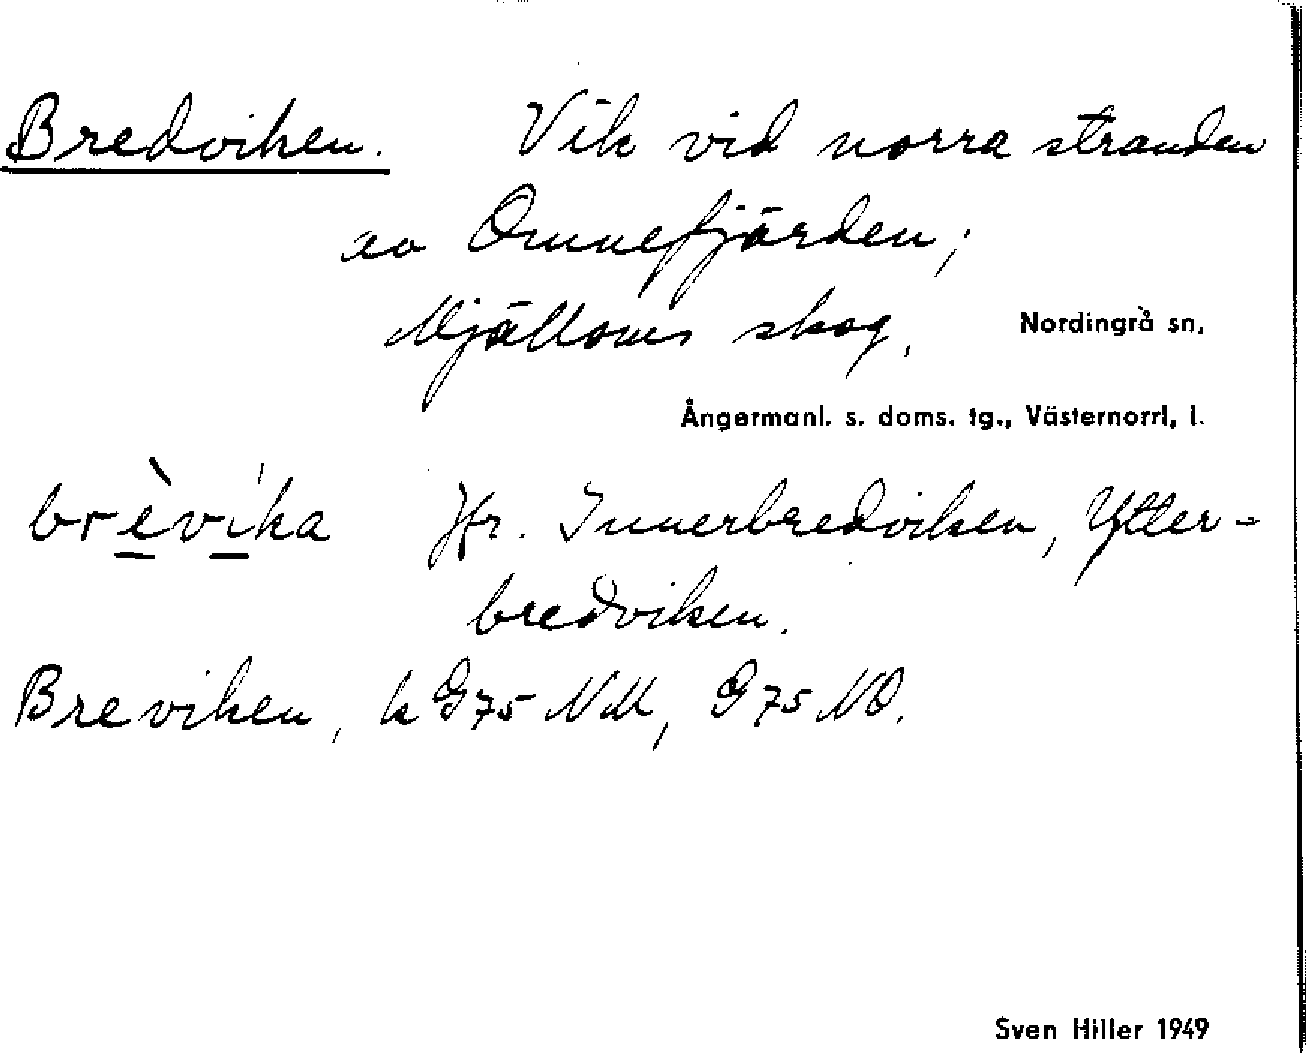 Bredviken. Vik vid norra stranden
av Omnefjärden;
Mjälloms skog, Nordingrå sn,
Ångermanl. s. doms. tg., Västernorrl, l.
brèvíka Jfr. Innerbredviken, Ytter-
bredviken.
Breviken, k G75 NM, G75 NO.
Sven Hiller 1949